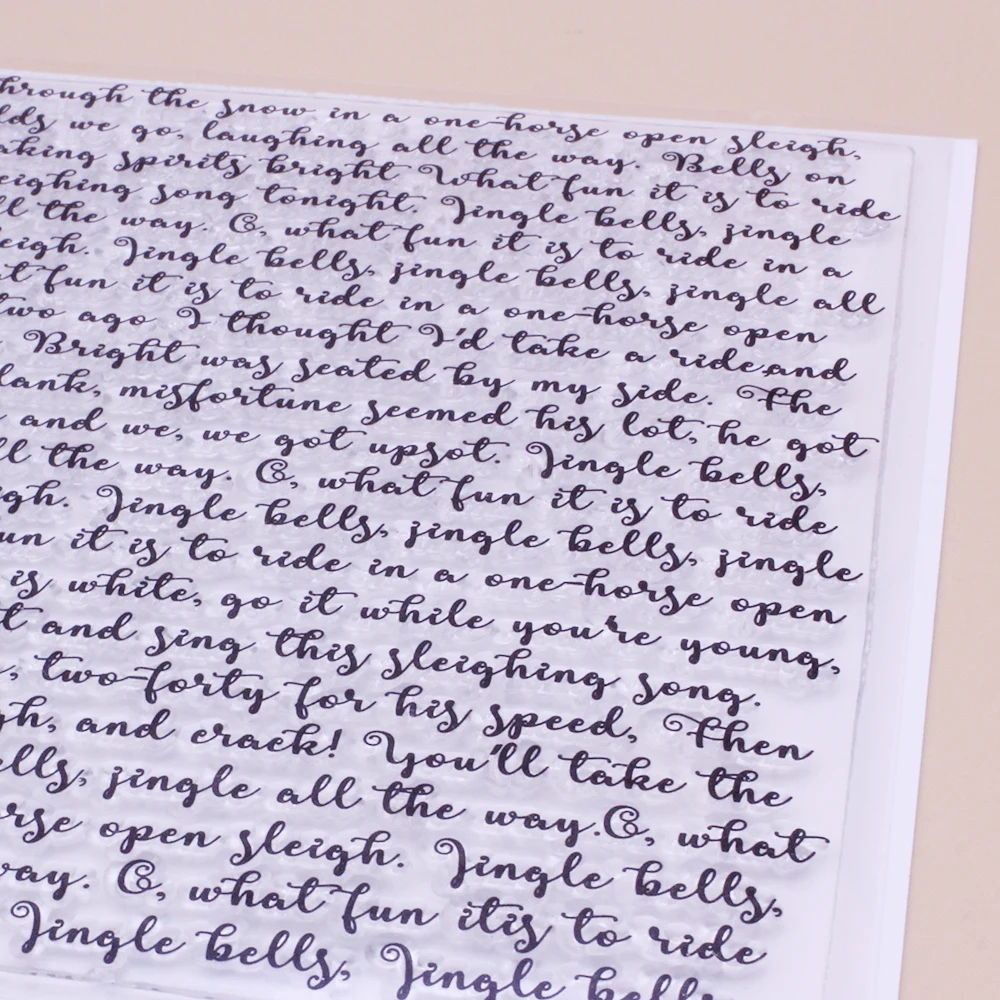 hrough the snow in a one-horse open sleigh,
lds we go, laughing all the way. Bells on
aking spirits bright What fun it is to ride
eighing song tonight. Jingle bells, jingle
ll the way. O, what fun it is to ride in a
eigh. Jingle bells, jingle bells, jingle all
at fun it is to ride in a one-horse open
two ago I thought I'd take a ride,and
Bright was seated by my side. The
lank, misfortune seemed his lot, he got
and we, we got upsot. Jingle bells,
ll the way. O, what fun it is to ride
igh. Jingle bells, jingle bells, jingle
un it is to ride in a one-horse open
is white, go it while you're young,
t and sing this sleighing song.
, two-forty for his speed, Then
gh, and crack! You'll take the
ells, jingle all the way.O, what
orse open sleigh. Jingle bells,
way. O, what fun itis to ride
Jingle bells, Jingle bells